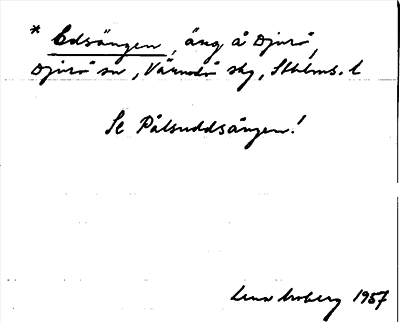 * Edsängen, äng å Djurö,
Djurö sn, Värmdö skg, Sthlms. l
Se Pålsuddsängen!
Lena Moberg 1957